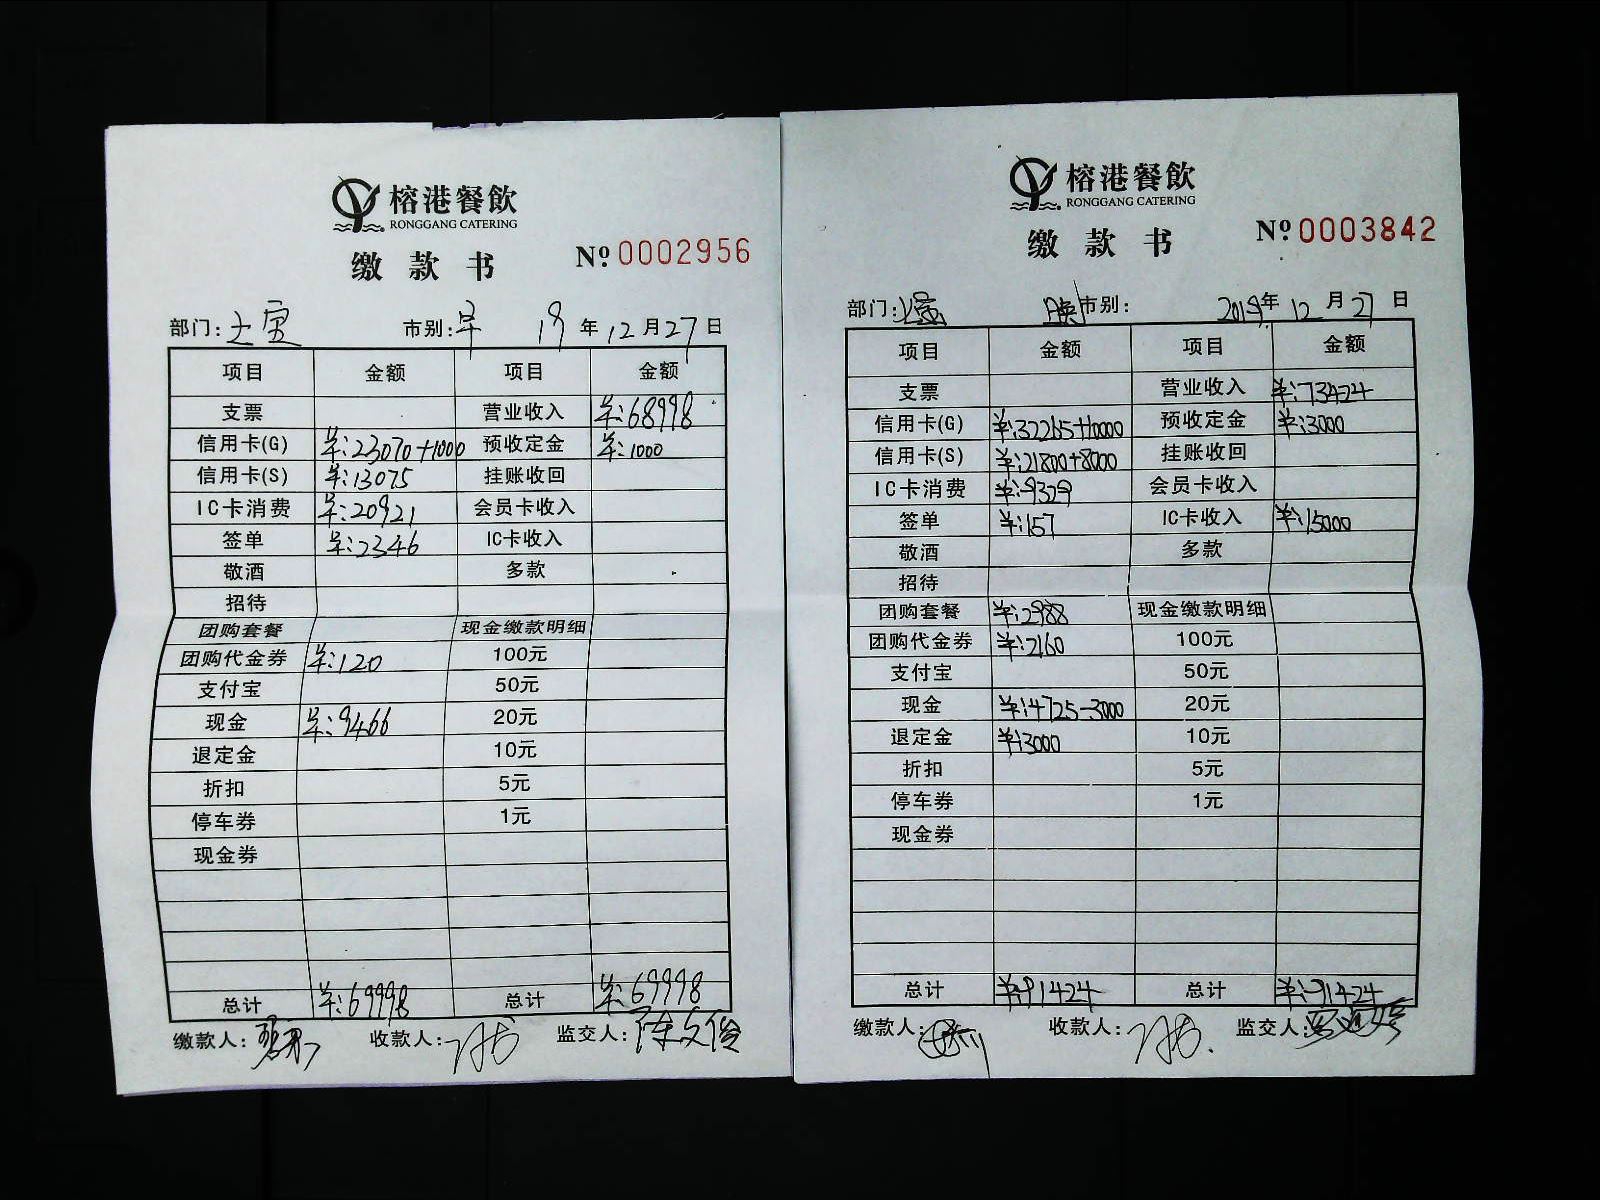 榕港餐飲
RONGGANG CATERING
缴款书
№ 0002956
部门: 市别:早 19年12月27日
项目 金额 项目 金额
支票 营业收入 ¥:68998
信用卡(G) ¥:23070+1000 预收定金 ¥:1000
信用卡(S) ¥:13075 挂账收回
IC卡消费 ¥:20921 会员卡收入
签单 ¥:2346 IC卡收入
敬酒 多款
招待
团购套餐 现金缴款明细
团购代金券 ¥:120 100元
支付宝 50元
现金 ¥:9466 20元
退定金 10元
折扣 5元
停车券 1元
现金券
总计 ¥:69998 总计 ¥:69998
缴款人: 收款人: 监交人:陈文俊
榕港餐飲
RONGGANG CATERING
缴款书
№ 0003842
部门: 市别: 2019年12月27日
项目 金额 项目 金额
支票 营业收入 ¥:73424
信用卡(G) ¥:32265+10000 预收定金 ¥:3000
信用卡(S) ¥:21800+8000 挂账收回
IC卡消费 ¥:9329 会员卡收入
签单 ¥:157 IC卡收入 ¥:15000
敬酒 多款
招待
团购套餐 ¥:2988 现金缴款明细
团购代金券 ¥:2160 100元
支付宝 50元
现金 ¥:4725-3000 20元
退定金 ¥:3000 10元
折扣 5元
停车券 1元
现金券
总计 ¥:91424 总计 ¥:91424
缴款人: 收款人: 监交人: